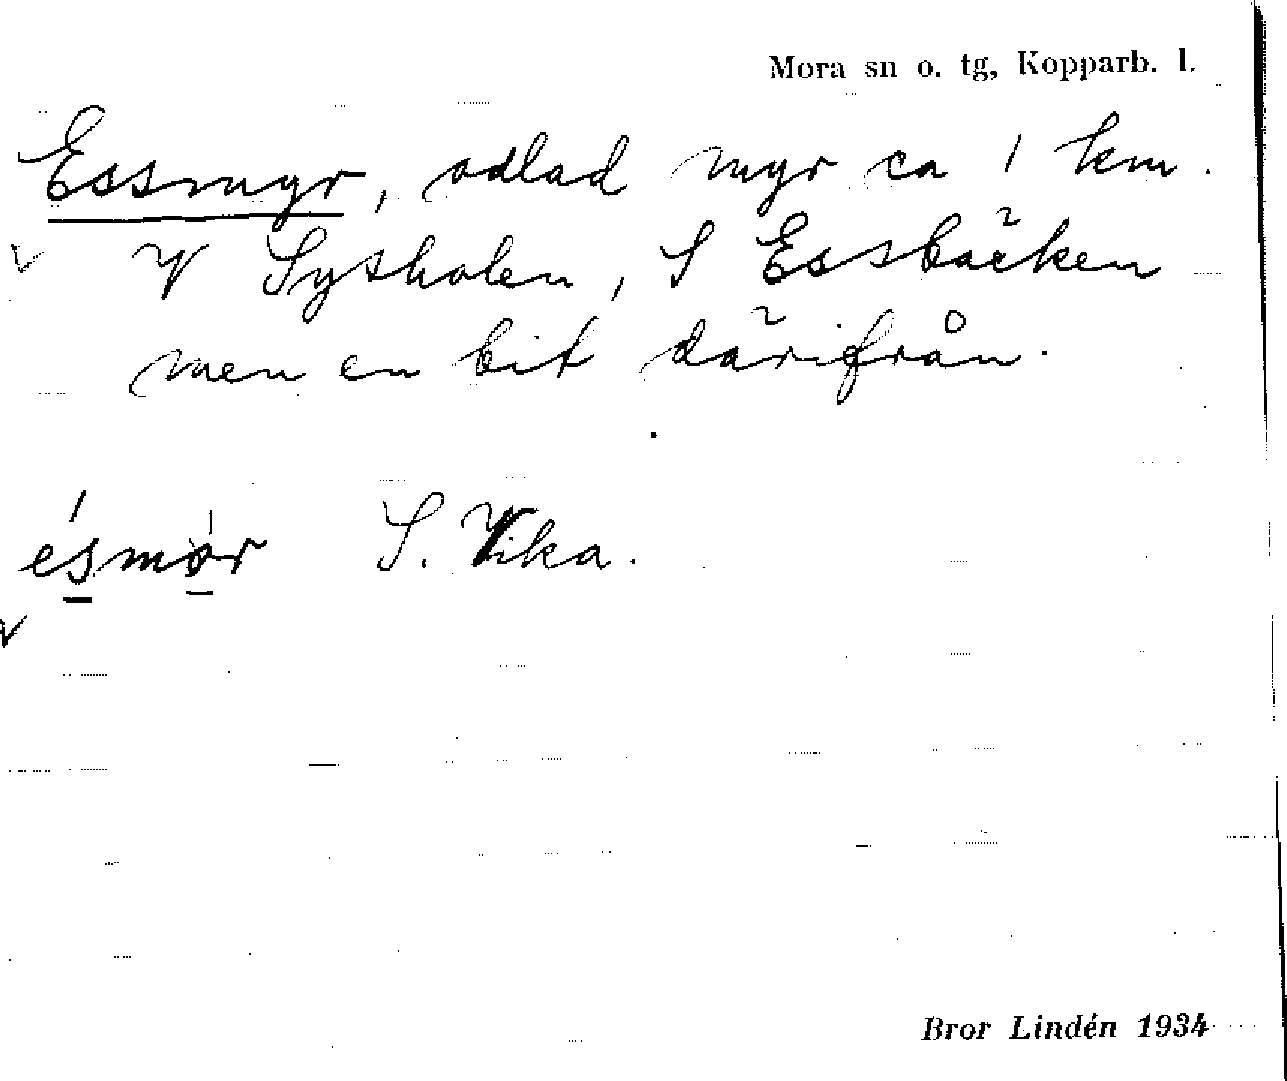 Mora sn o. tg, Kopparb. l.
Essmyr, odlad myr ca 1 km.
V Sysholen, S Essbäcken
men en bit därifrån.
S. Vika.
Bror Lindén 1934